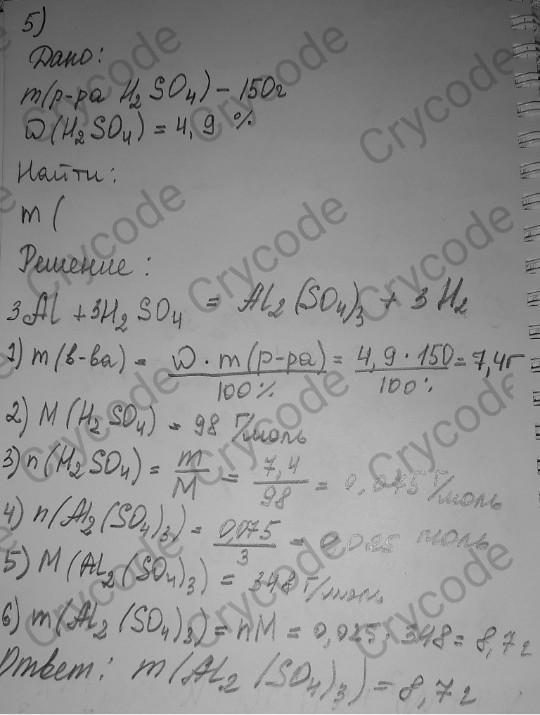 5)
Дано:
m(р-ра H₂SO₄) - 150г
ω(H₂SO₄) = 4,9 %
Найти:
m (
Решение:
3Al + 3H₂SO₄ = Al₂(SO₄)₃ + 3H₂
1) m(в-ва) = ω · m(р-ра) / 100% = 4,9 · 150 / 100% = 7,4г
2) M(H₂SO₄) = 98 г/моль
3) n(H₂SO₄) = m / M = 7,4 / 98 = 0,075 г/моль
4) n(Al₂(SO₄)₃) = 0,075 / 3 = 0,025 моль
5) M(Al₂(SO₄)₃) = 348 г/моль
6) m(Al₂(SO₄)₃) = nM = 0,025 · 348 = 8,7 г
Ответ: m(Al₂(SO₄)₃) = 8,7 г
Crycode
Crycode
Crycode
Crycode
Crycode
Crycode
Crycode
Crycode
Crycode
Crycode